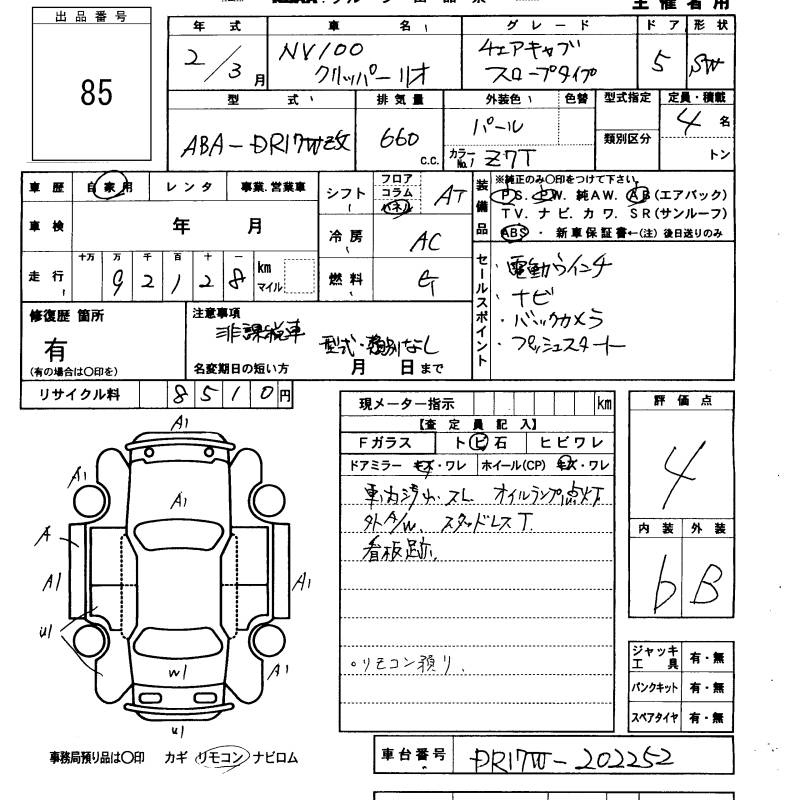 主催者用
出品番号
85
年式 車名 グレード ドア 形状
2/3月 NV100クリッパーリオ 4エアキャブ スロープタイプ 5 SW
型式 排気量 外装色 色替 型式指定 定員・積載
ABA-DR17W改 660 c.c. パール カラーNo. Z7T 類別区分 4名 トン
車歴 自家用 レンタ 事業.営業車
車検 年 月
走行 十万 万 千 百 十 一 km マイル
92128
シフト フロア コラム パネル AT
冷房 AC
燃料
装備品 ※純正のみ〇印をつけて下さい。
PS. PW. 純AW. AB(エアバック)
TV. ナビ. カワ. SR(サンルーフ)
ABS ・ 新車保証書←(注)後日送りのみ
セールスポイント
・電動ウインチ
・ナビ
・バックカメラ
・プッシュスタート
修復歴 箇所
有
(有の場合は〇印を)
注意事項
非課税車 型式・類別なし
名変期日の短い方 月 日まで
リサイクル料 8510円
現メーター指示 km
【査定員記入】
Fガラス トビ石 ヒビワレ
ドアミラー キズ・ワレ ホイール(CP) キズ・ワレ
車内汚れ.スレ オイルランプ点灯
外A/W. スタッドレスT
看板跡.
○リモコン預り.
評価点
4
内装 外装
b B
ジャッキ工具 有・無
パンクキット 有・無
スペアタイヤ 有・無
A1
A1
A1
A1
A
A1
A1
U1
W1
A1
U1
事務局預り品は〇印 カギ リモコン ナビロム
車台番号 DR17W-202252